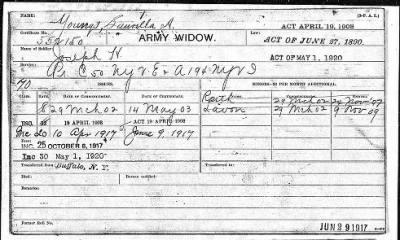 NAME: Youngs, Luvilla A. (D-P. A. C.)
Certificate No. 552150 ARMY WIDOW. Law: ACT APRIL 19, 1908
ACT OF JUNE 27, 1890.
Name of Soldier: Joseph H. ACT OF MAY 1, 1920
Service: Pr. C 50 N.Y.V.E. & A 194 N.Y.V.I
ISSUES. MINORS—$2 PER MONTH ADDITIONAL.
RATE DATE OF COMMENCEMENT
8 29 Mch 02 14 May 03 Ruth 29 Mch 02 24 Nov 07
INC. 12 19 APRIL 1908 ACT 19 APRIL 1908 29 Mch 02 9 Nov 09
Inc 20 10 Apr 1917 June 9, 1917
INC. 25 OCTOBER 6, 1917
Inc 30 May 1, 1920
Transferred from Buffalo, N. Y.
Former Roll No. JUN 29 1917